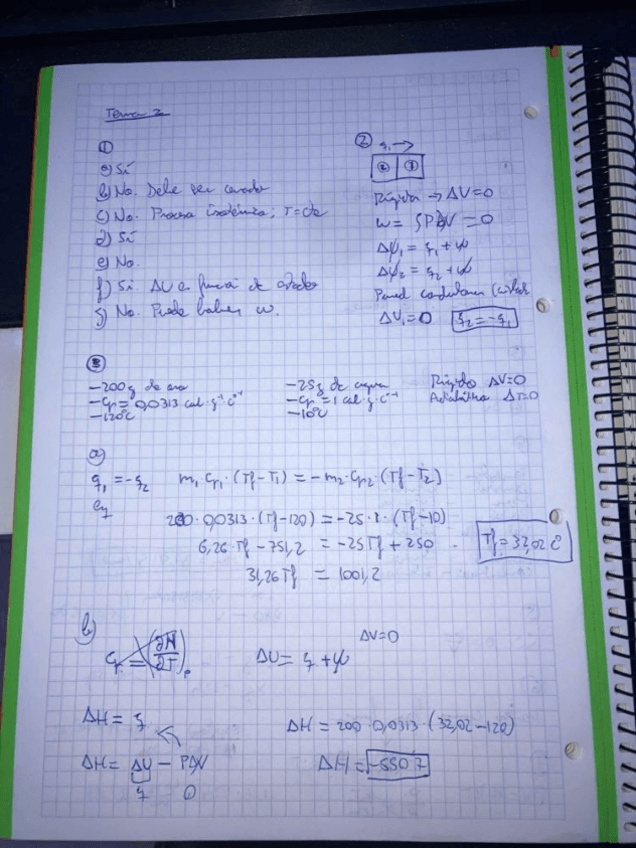 Tema 2
①
a) Sí
b) No. Debe ser cerrado
c) No. Proceso isotérmico; T=cte
d) Sí
e) No.
f) Sí ΔU es función de estado
g) No. Puede haber w.
②
q₁ →
② ①
Rígida → ΔV=0
w = ∫PdV = 0
Δψ₁ = q₁ + w
Δψ₂ = q₂ + w
Pared conductora
ΔU₁=0 q₂ = -q₁
③
-200g de oro
-Cp = 0,0313 cal·g⁻¹·C⁻¹
-120°C
-25g de agua
-Cp = 1 cal·g·C⁻¹
-10°C
Rígido ΔV=0
Adiabático ΔT=0
a)
q₁ = -q₂ m₁ Cp₁·(Tf-T₁) = -m₂·Cp₂·(Tf-T₂)
200·0,0313·(Tf-120) = -25·1·(Tf-10)
6,26·Tf - 751,2 = -25Tf + 250
Tf = 32,02 C
31,26Tf = 1001,2
b)
Cp = (∂H/∂T)p
ΔU = q + w
ΔV=0
ΔH = q
ΔH = 200·0,0313·(32,02-120)
ΔH = ΔU - PΔV
q 0
ΔH = -550 7